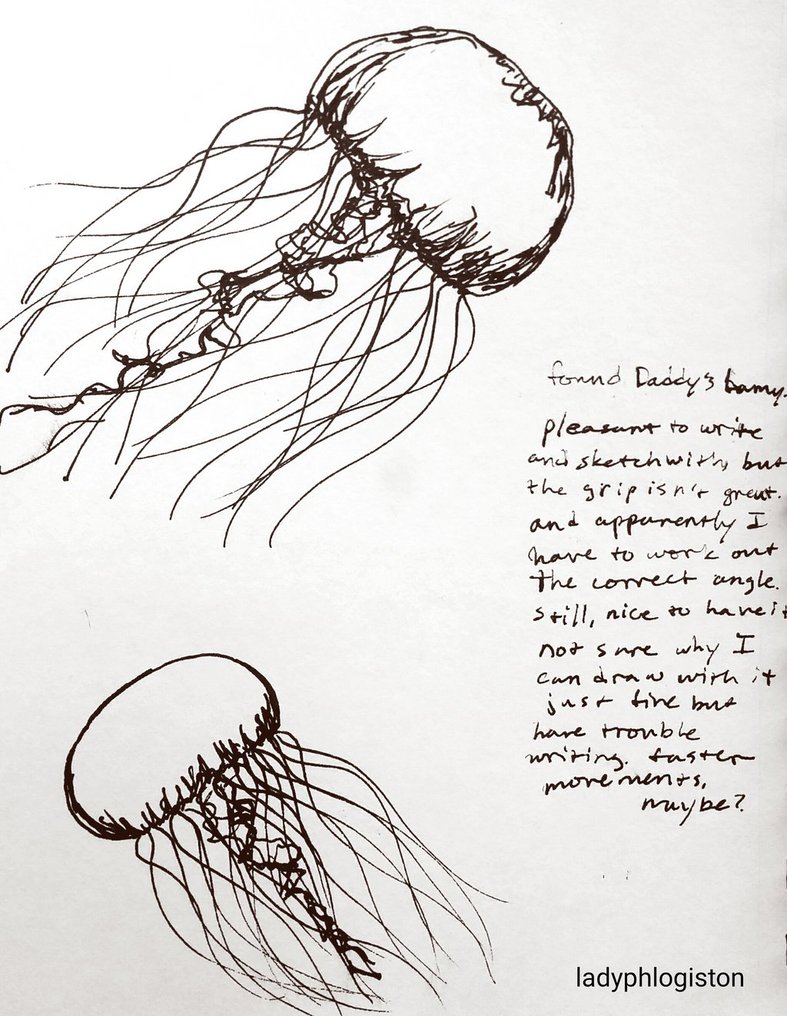 found Daddy's Lamy.
pleasant to write
and sketch with, but
the grip isn't great.
and apparently I
have to work out
the correct angle.
still, nice to have it
not sure why I
can draw with it
just fine but
have trouble
writing. faster
movements,
maybe?
ladyphlogiston